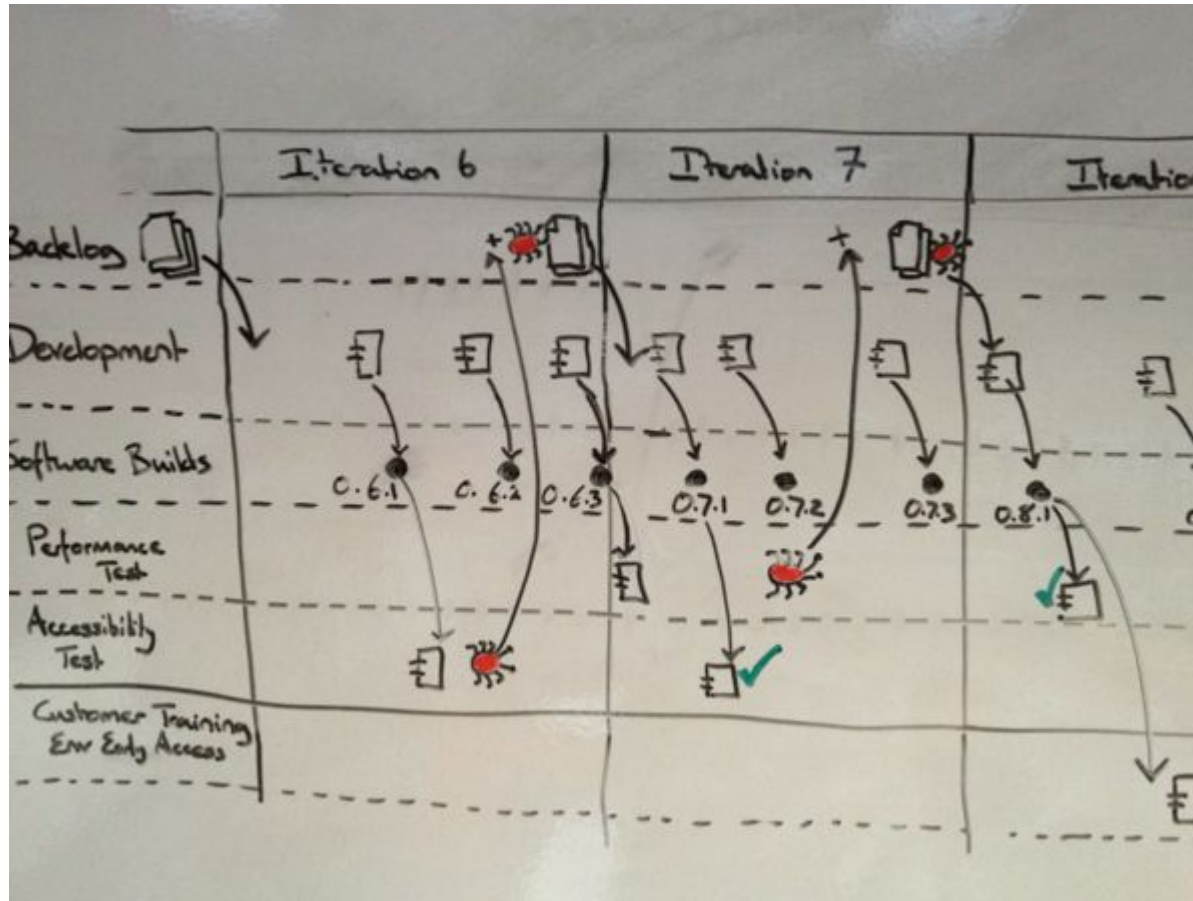 Iteration 6
Iteration 7
Iteration
Backlog
+
+
Development
Software Builds
0.6.1
0.6.2
0.6.3
0.7.1
0.7.2
0.7.3
0.8.1
Performance
Test
Accessibility
Test
Customer Training
Env Early Access